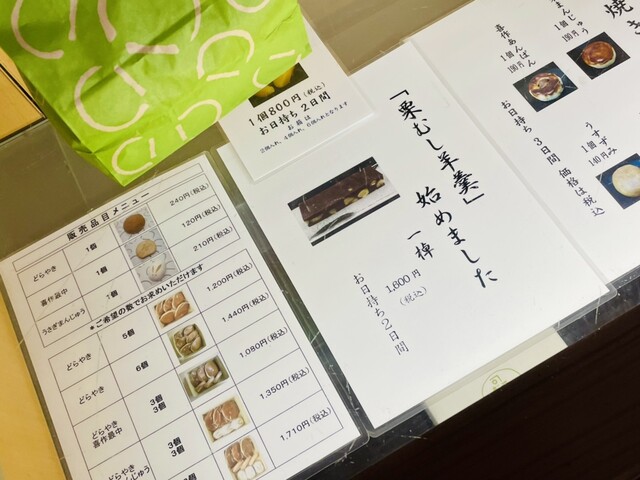 1個800円(税込)
お日持ち2日間
お箱は
「栗むし羊羹」
始めました
一棹
1,800円
(税込)
お日持ち2日間
焼き
まんじゅう
1個
190円
喜作あんぱん
1個
190円
うすずみ
1個
140円
お日持ち 3日間 価格は税込
販売品目メニュー
どらやき 1個 240円(税込)
喜作最中 1個 120円(税込)
うさぎまんじゅう 1個 210円(税込)
*ご希望の数でお求めいただけます
どらやき 5個 1,200円(税込)
どらやき 6個 1,440円(税込)
どらやき 3個 1,080円(税込)
喜作最中 3個
どらやき 3個 1,350円(税込)
うさぎまんじゅう 3個
1,710円(税込)